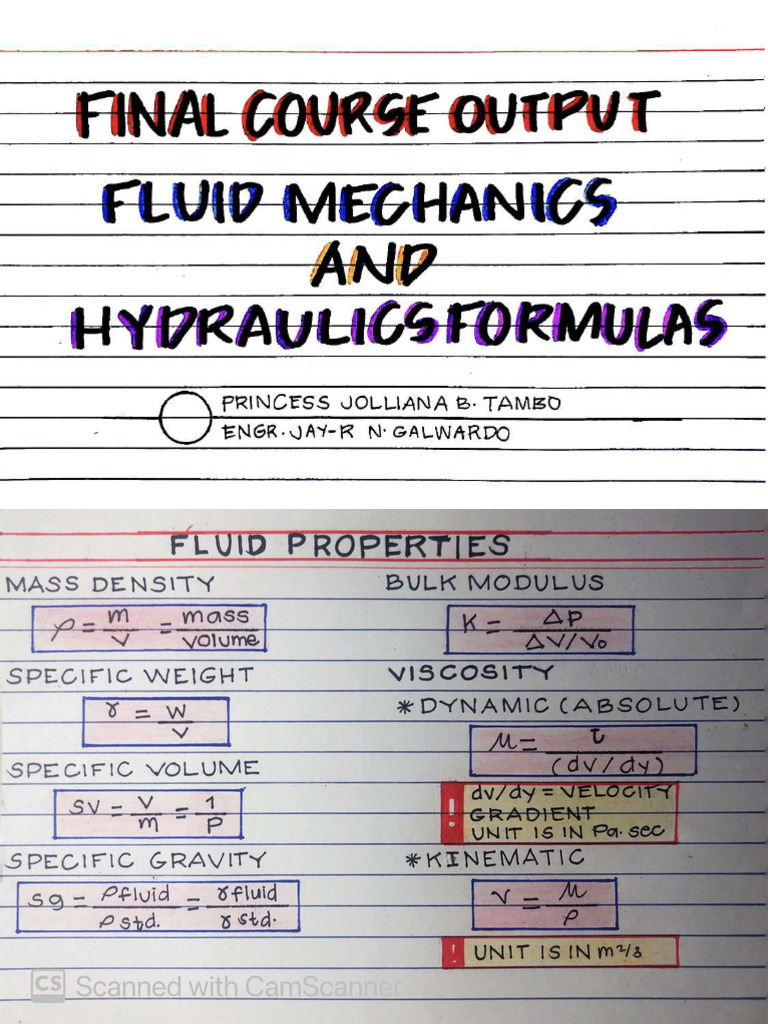 FINAL COURSE OUTPUT
FLUID MECHANICS
AND
HYDRAULICS FORMULAS
PRINCESS JOLLIANA B. TAMBO
ENGR. JAY-R N. GALWARDO
FLUID PROPERTIES
MASS DENSITY
ρ = m/V = mass/volume
SPECIFIC WEIGHT
γ = W/V
SPECIFIC VOLUME
SV = V/m = 1/ρ
SPECIFIC GRAVITY
sg = ρfluid/ρstd. = γfluid/γstd.
BULK MODULUS
K = ΔP/(ΔV/V₀)
VISCOSITY
*DYNAMIC (ABSOLUTE)
μ = τ/(dv/dy)
! dv/dy = VELOCITY
GRADIENT
UNIT IS IN Pa. sec
*KINEMATIC
ν = μ/ρ
! UNIT IS IN m²/s
CS Scanned with CamScanner